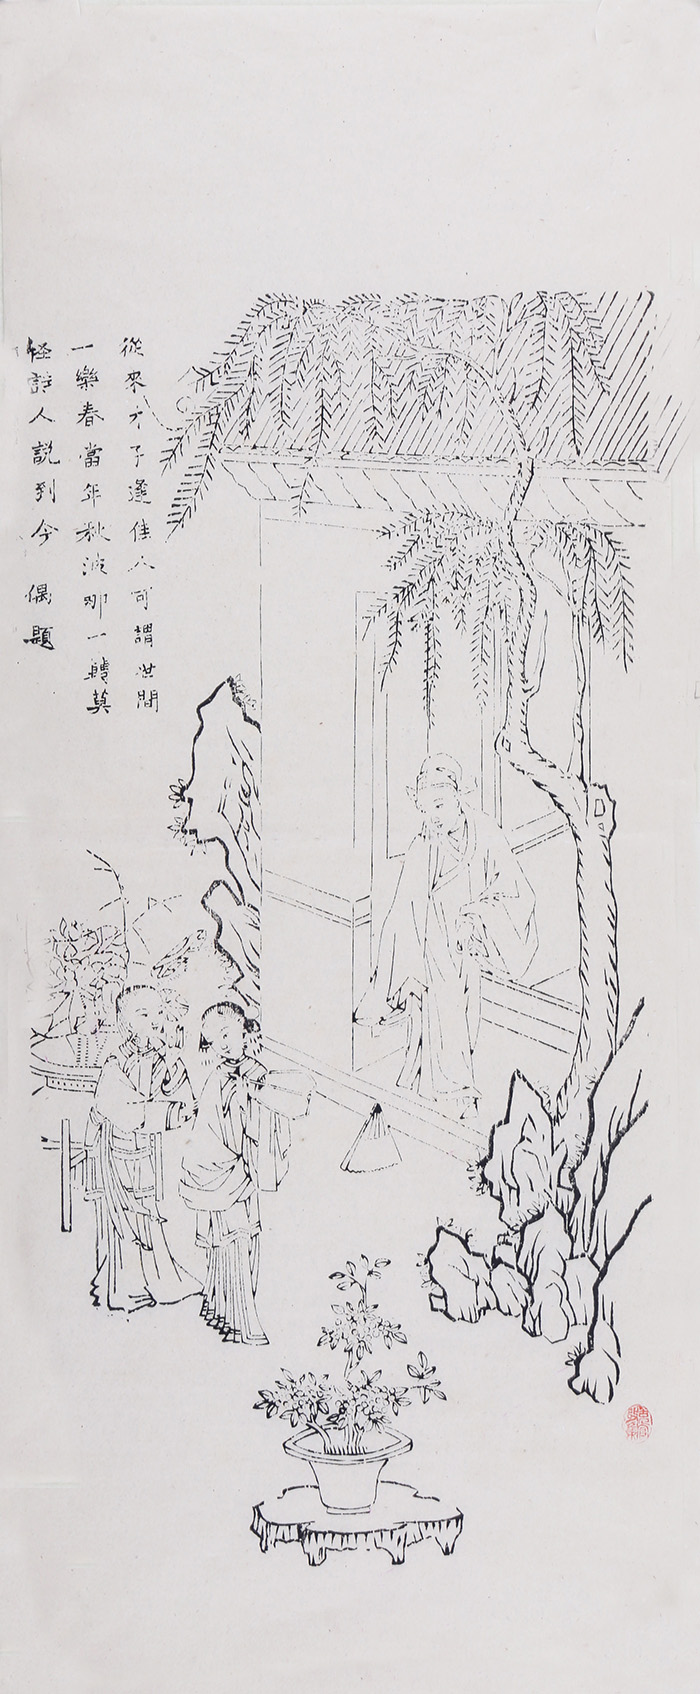 從來才子逢佳人可謂世間
一樂春當年秋波那一轉莫
怪詩人說到今 偶題